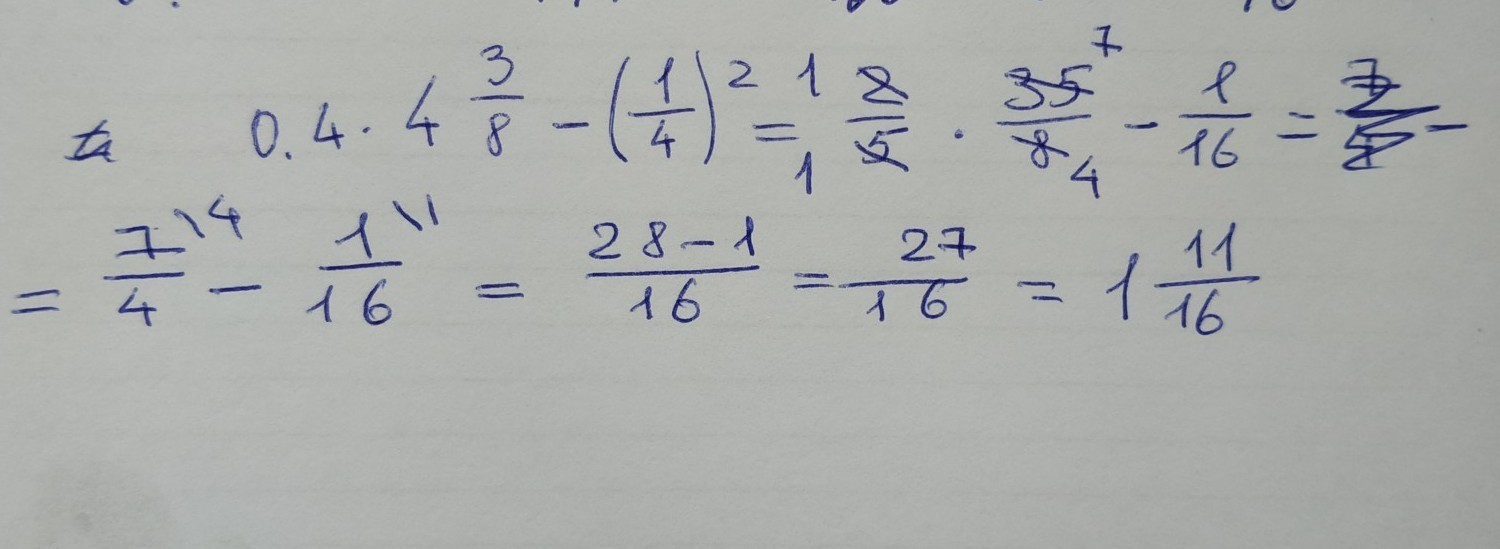 0.4 · 4 3/8 − (1/4)² = 1 2/5 1 · 35/8 7 4 − 1/16 =
= 7/4 \4 − 1/16 \1 = 28−1/16 = 27/16 = 1 11/16